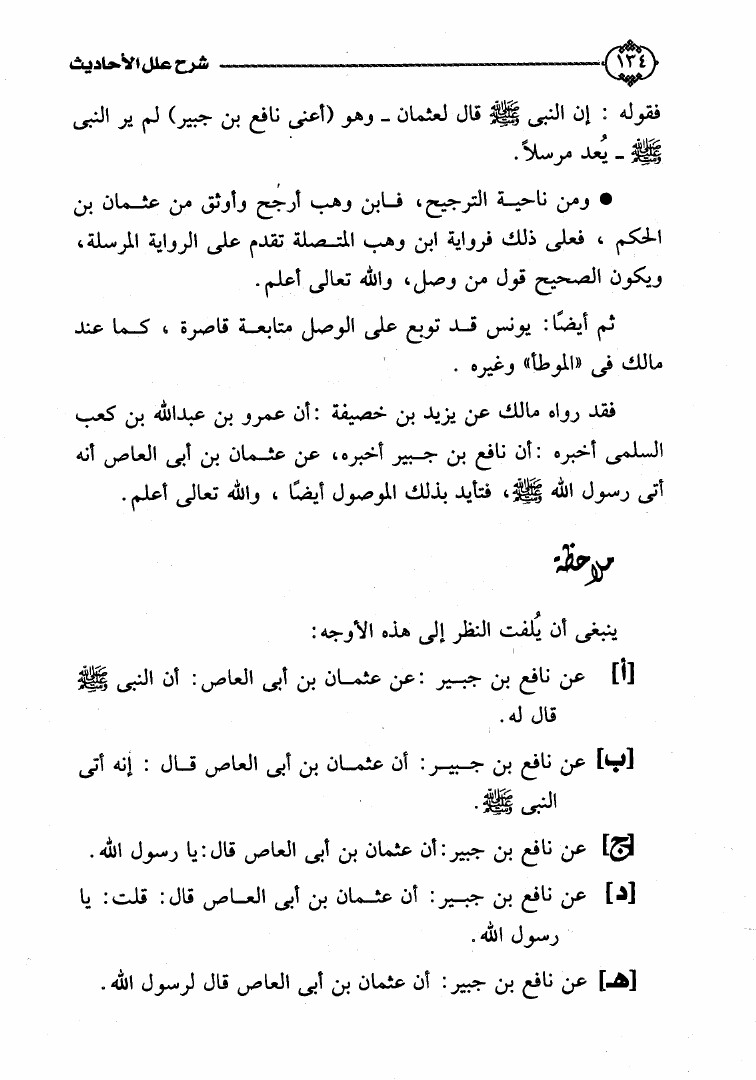 ١٣٤ شرح علل الأحاديث
فقوله : إن النبى ﷺ قال لعثمان ـ وهو (أعنى نافع بن جبير) لم ير النبى
ﷺ ـ يُعد مرسلاً.
● ومن ناحية الترجيح، فابن وهب أرجح وأوثق من عثمان بن
الحكم ، فعلى ذلك فرواية ابن وهب المتصلة تقدم على الرواية المرسلة،
ويكون الصحيح قول من وصل، والله تعالى أعلم.
ثم أيضًا: يونس قد توبع على الوصل متابعة قاصرة ، كما عند
مالك فى «الموطأ» وغيره .
فقد رواه مالك عن يزيد بن خصيفة :أن عمرو بن عبدالله بن كعب
السلمى أخبره :أن نافع بن جبير أخبره، عن عثمان بن أبى العاص أنه
أتى رسول الله ﷺ، فتأيد بذلك الموصول أيضًا ، والله تعالى أعلم.
ملاحظة
ينبغى أن يُلفت النظر إلى هذه الأوجه:
[أ] عن نافع بن جبير :عن عثمان بن أبى العاص: أن النبى ﷺ
قال له.
[ب] عن نافع بن جبير: أن عثمان بن أبى العاص قال : إنه أتى
النبى ﷺ.
[ج] عن نافع بن جبير:أن عثمان بن أبى العاص قال:يا رسول الله.
[د] عن نافع بن جبير: أن عثمان بن أبى العاص قال: قلت: يا
رسول الله.
[هـ] عن نافع بن جبير: أن عثمان بن أبى العاص قال لرسول الله.